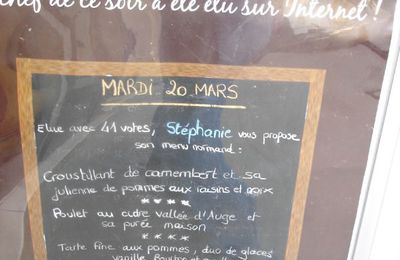 chef de ce soir a été élu sur Internet !
MARDI 20 MARS
Elue avec 41 votes, Stéphanie vous propose
son menu normand :
Croustillant de camembert et sa
julienne de pommes aux raisins et noix
****
Poulet au cidre vallée d'Auge et
sa purée maison
****
Tarte fine aux pommes, duo de glaces
vanille